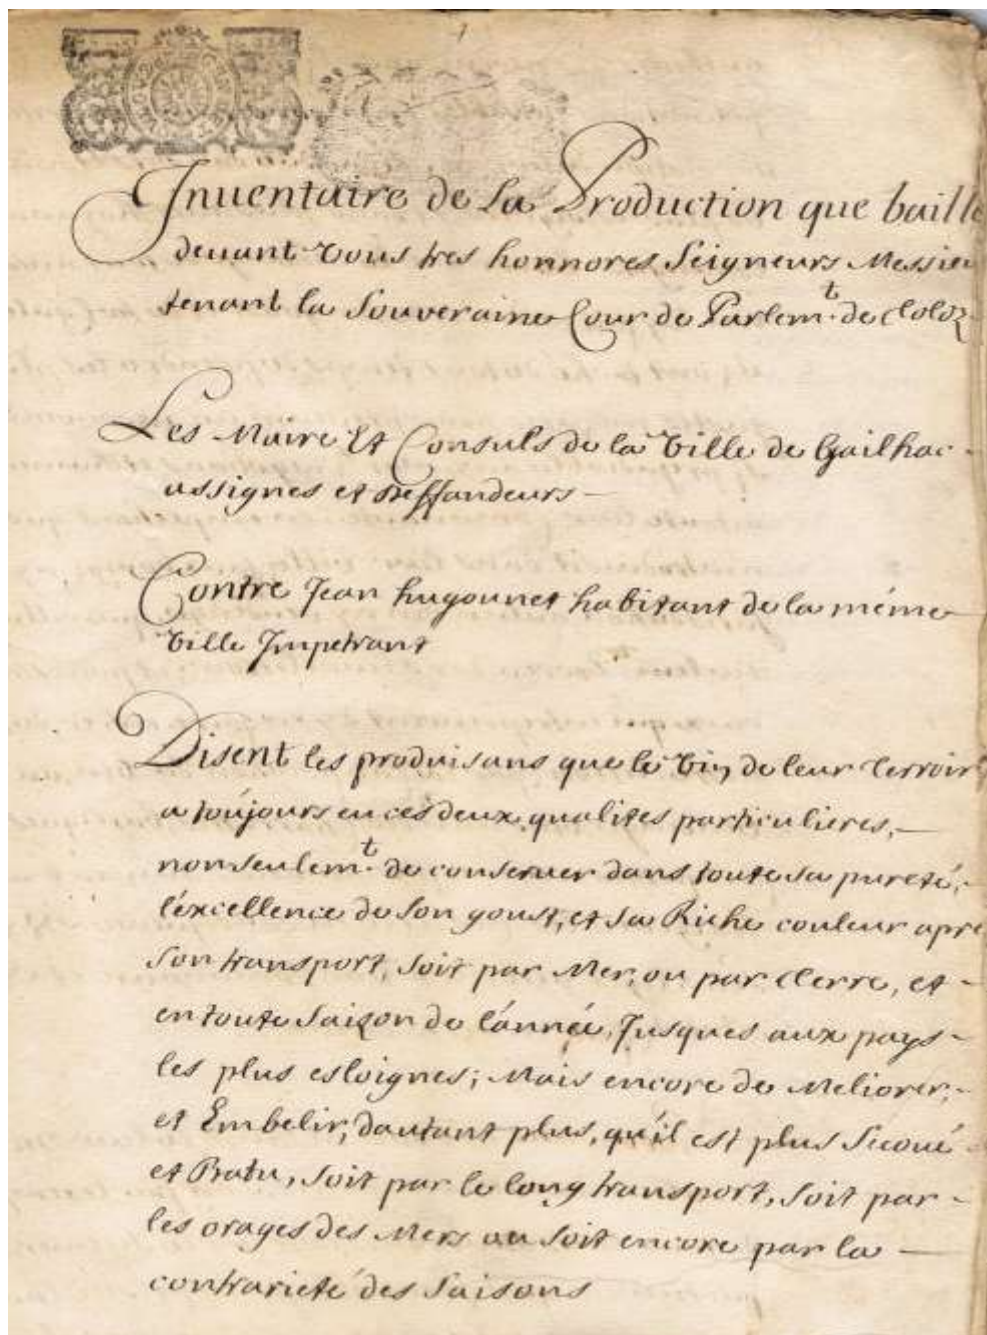 Inuentaire de La Production que baille
deuant Vous tres honnores Seigneurs Messieu
tenant la Souveraine Cour de Parlemt. de Toloze
Les Maire Et Consuls de la Ville de Gailhac
assignes et deffandeurs
Contre Jean hugounet habitant de la méme
Ville Impetrant
Disent les produisans que le Vin de leur Terroir
a toújours eu ces deux qualites particulieres,
non seulemt. de conseruer dans toute sa pureté,
l'éxcellence de son goust, et sa Riche couleur apre
son transport, soit par Mer, ou par Terre, et
en toute Saizon de l'ánnée, Jusques aux pays
les plus esloignes; Mais encore de Meliorer,
et Embelir, dautant plus, qu'il est plus Secoué
et Batu, soit par le long transport, soit par
les orages des Mers ou soit encore par la
contrarieté des Saisons